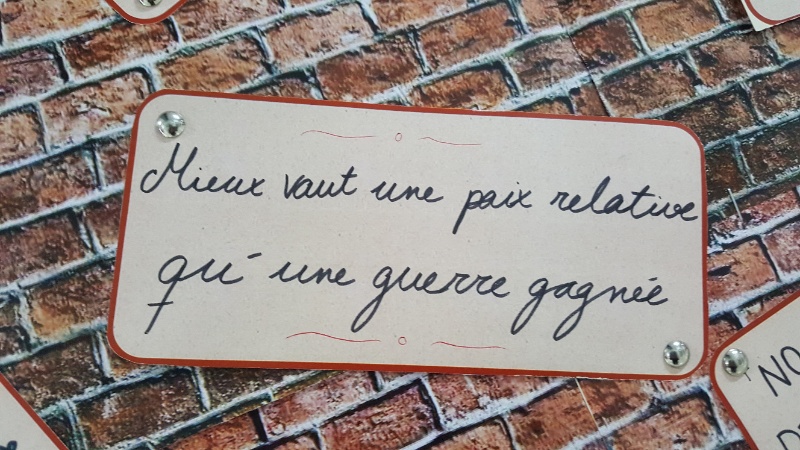 Mieux vaut une paix relative
qu'une guerre gagnée
NO